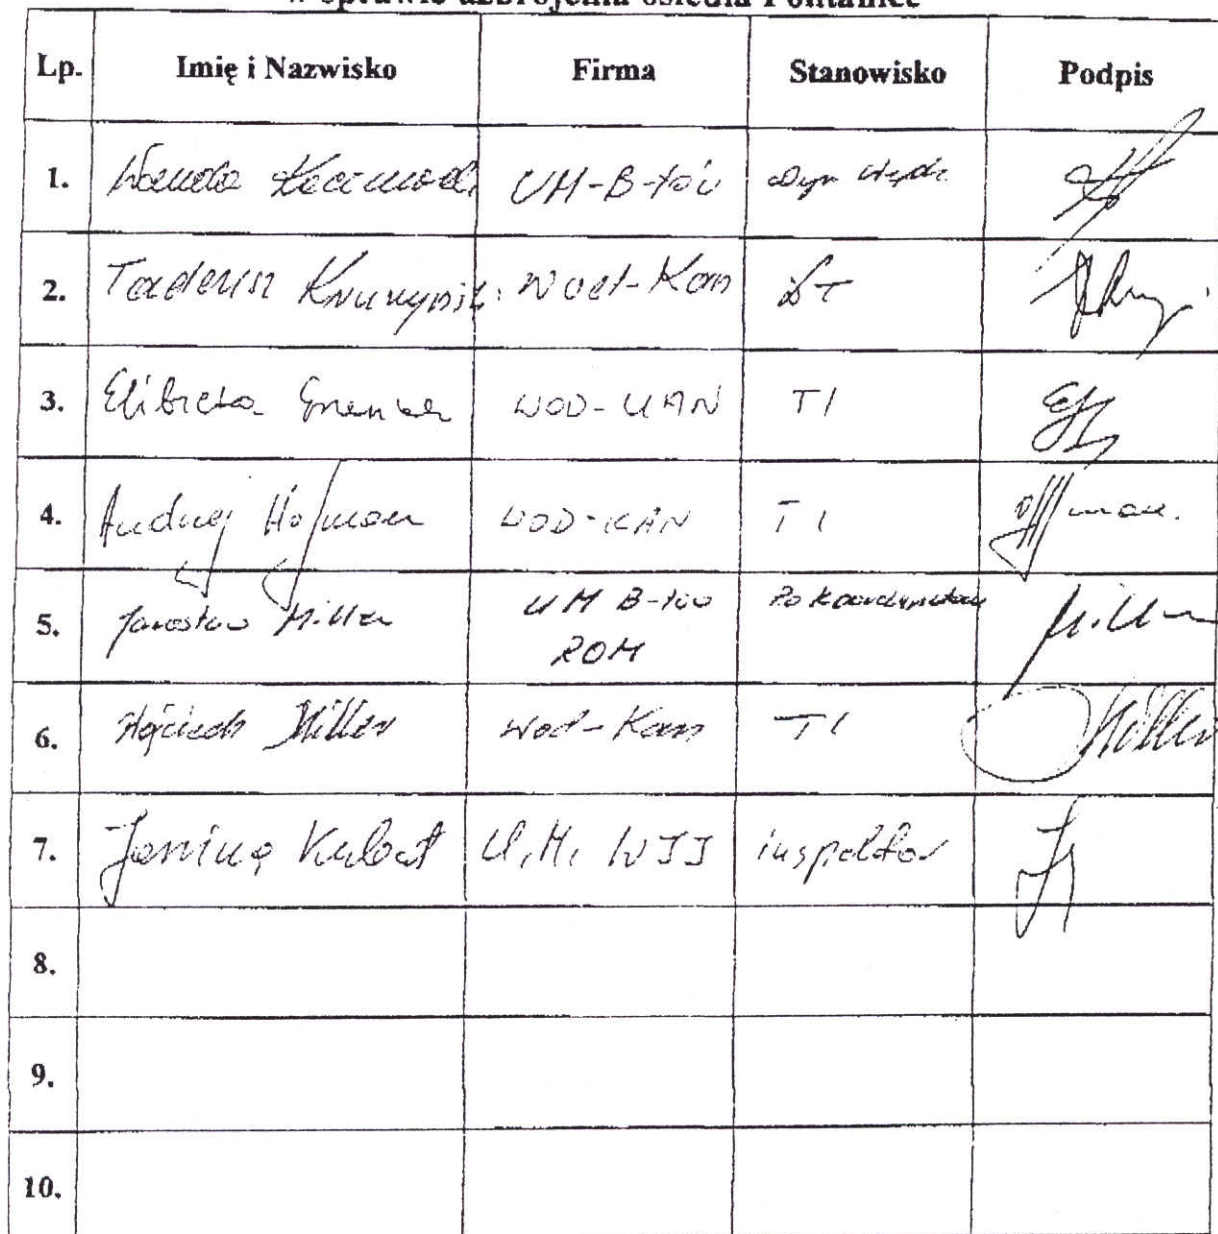 w sprawie uzbrojenia osiedla
Lp. Imię i Nazwisko Firma Stanowisko Podpis
1. UM-B-tów
2. Tadeusz Wod-Kan
3. Elżbieta WOD-KAN TI
4. Andrzej Hofman WOD-KAN TI
5. Jarosław Miller UM B-tów Miller
ROM
6. Wojciech Miller Wod-Kan TI Miller
7. Janina Kubat U.M. inspektor
8.
9.
10.